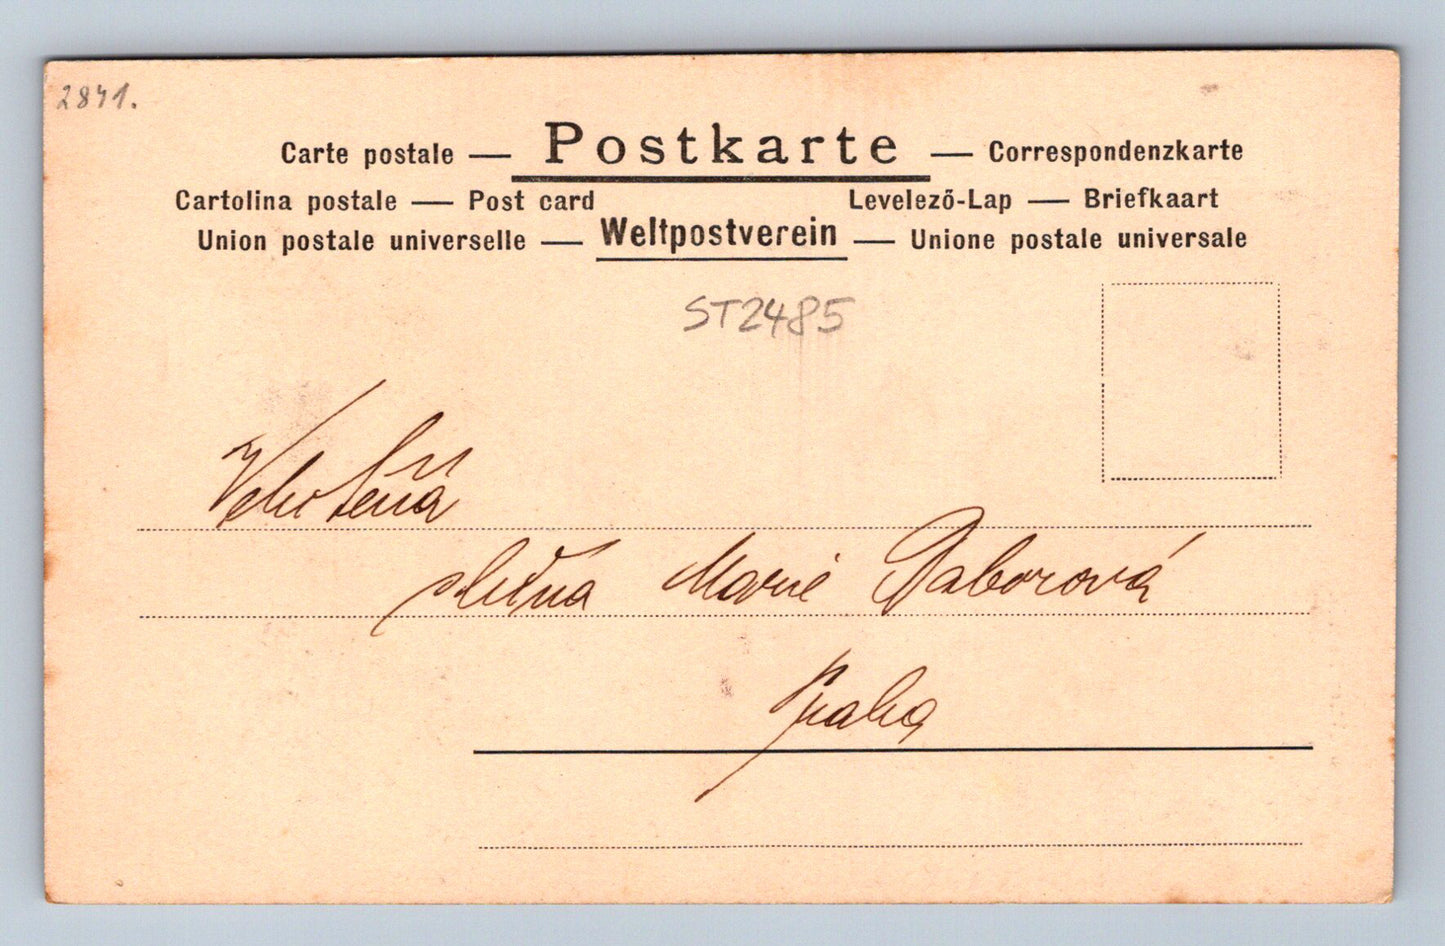 2841.
Carte postale — Postkarte — Correspondenzkarte
Cartolina postale — Post card Levelező-Lap — Briefkaart
Union postale universelle — Weltpostverein — Unione postale universale
ST2485
Velectěná
slečna Marie Gaborová
Praha